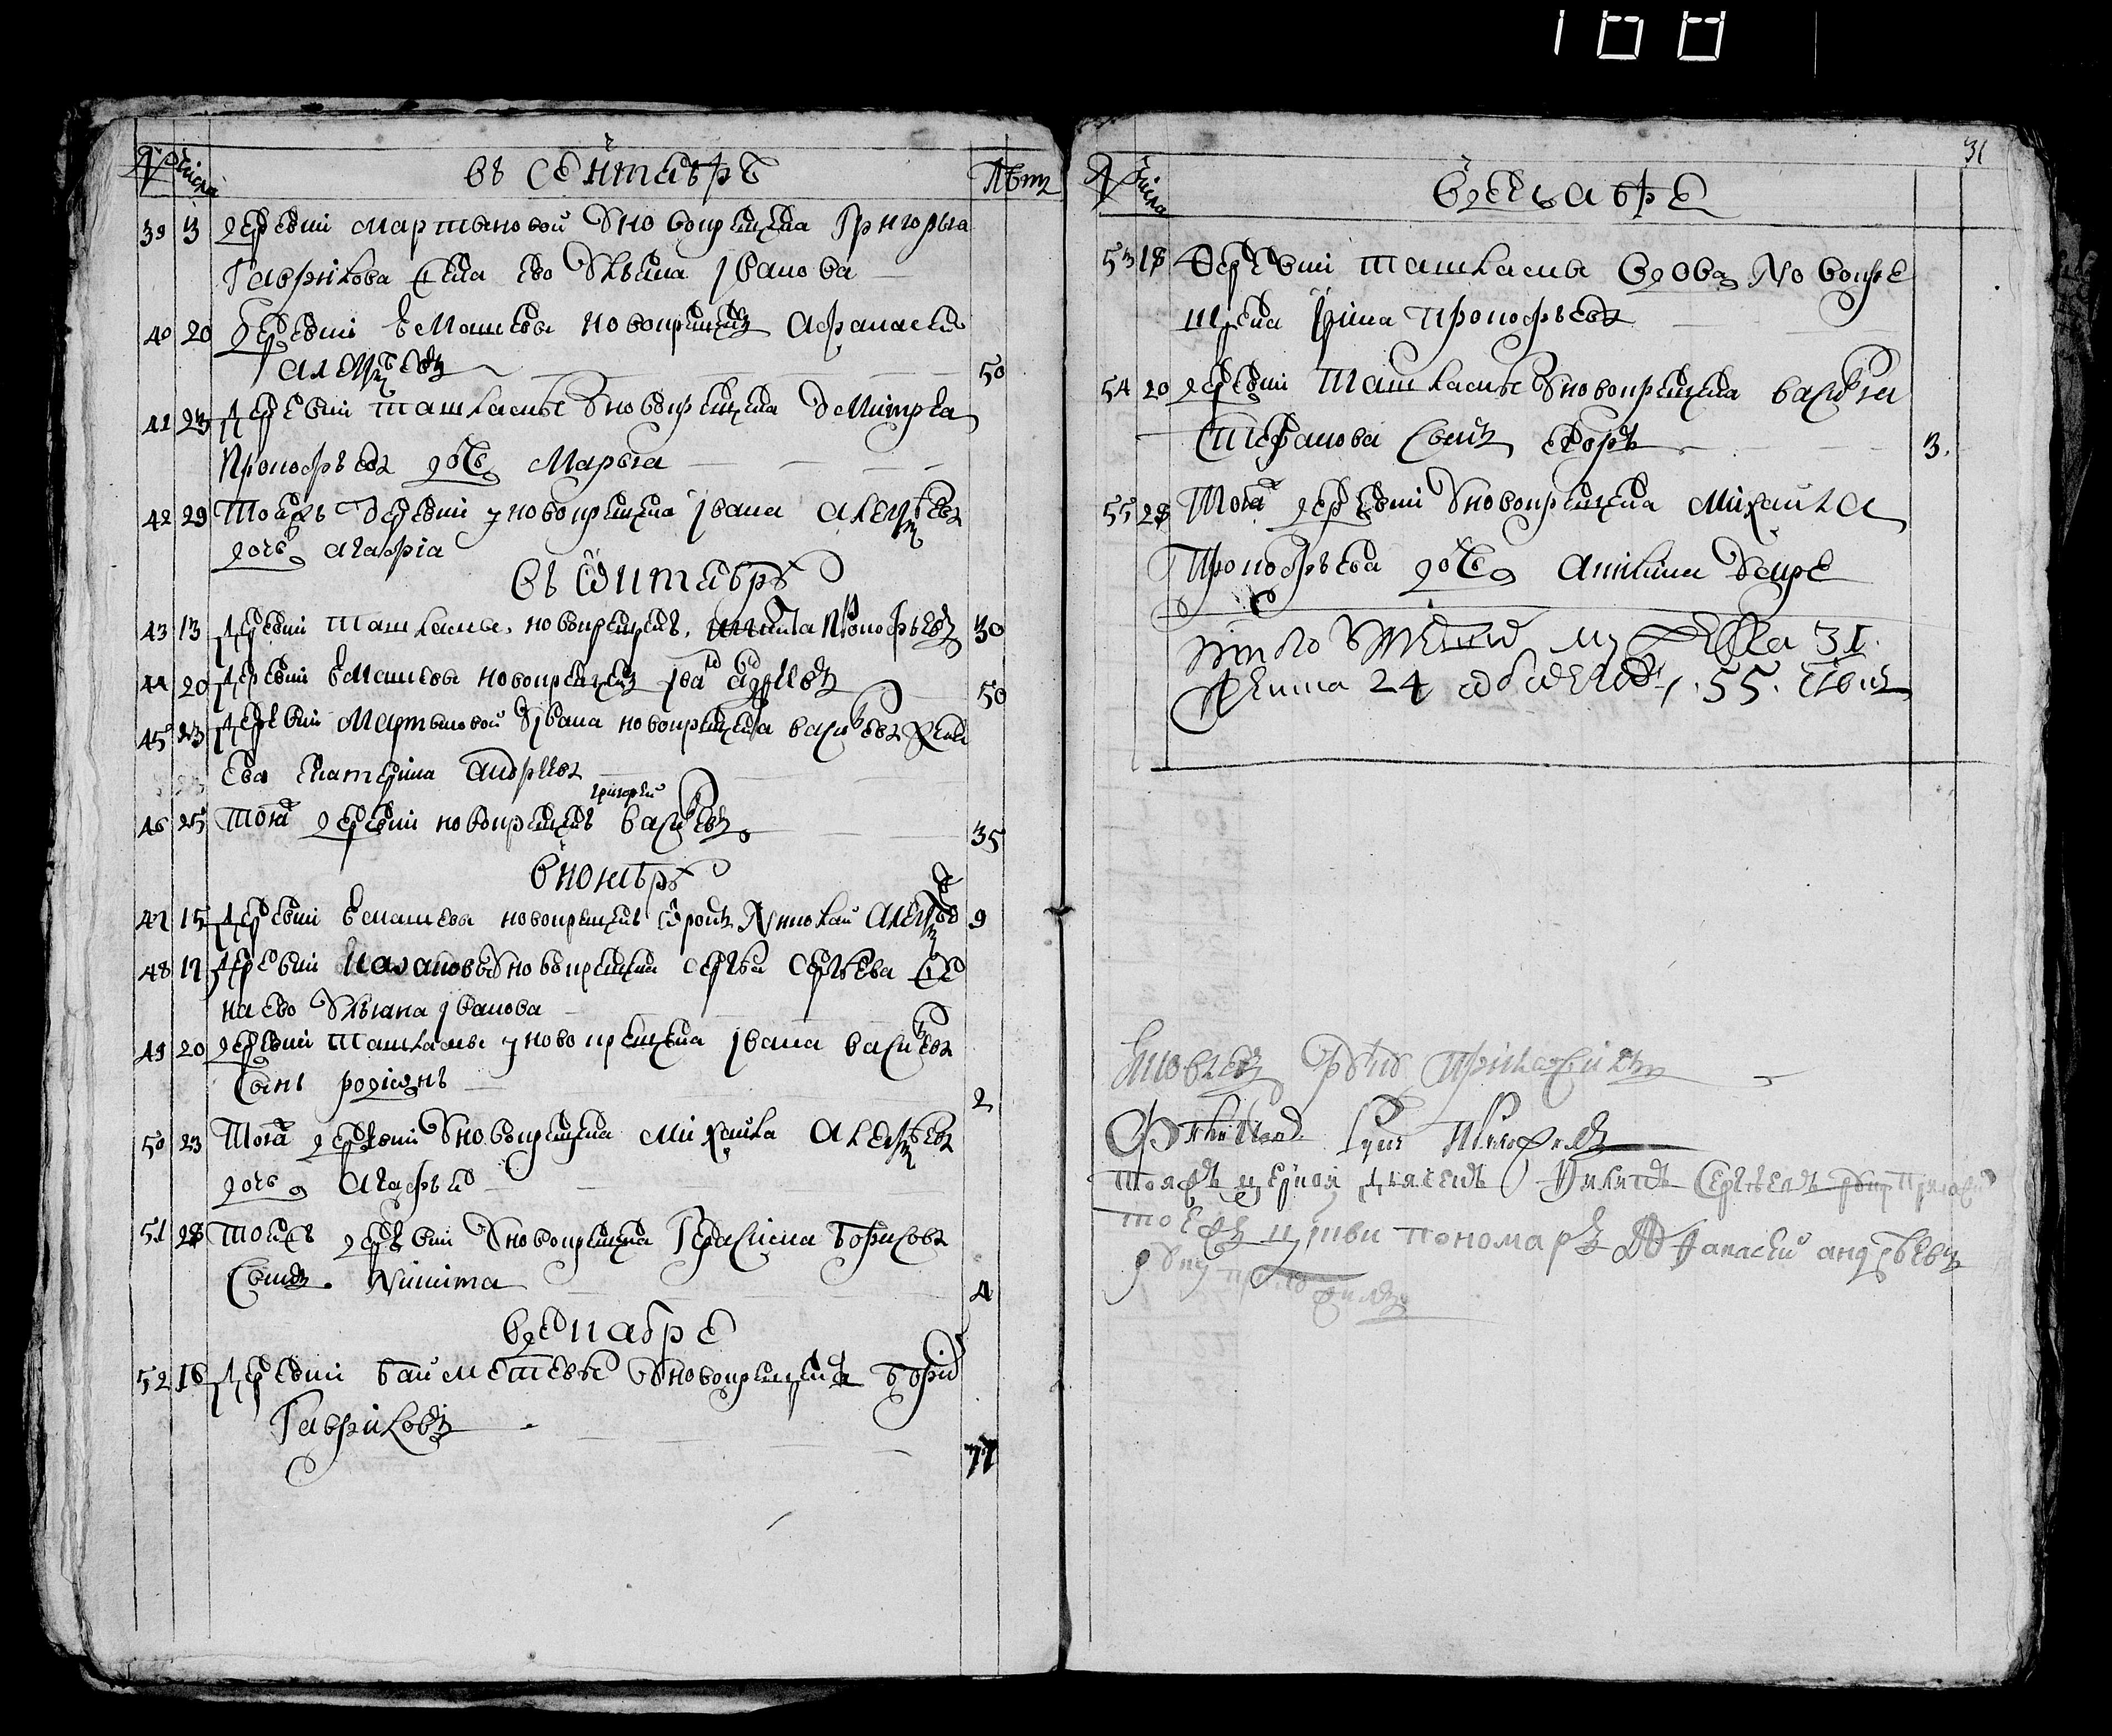 188
№ Числа въ сентабрѣ Лѣтъ
39 3 деревни мартыновой у новокрещена Григорья
Гаврилова жена ево Ульяна Iванова
40 20 деревни Емашевы новокрещенъ Афанасеи
Алексѣевъ 50
41 23 Деревни Ташкасы у новокрещена Дмитрея
Прокофьева дочь Марья
42 29 Тоежъ деревни у новокрещена Iвана Алексѣева
дочь Агафiа
въ октабрѣ
43 13 Деревни Ташкасы новокрещенъ Прокофьевъ 30
44 20 Деревни Емашевы новокрещенъ Iва Андреевъ 50
45 23 Деревни Мартыновой у Iвана новокрещена Васильева жена
Ева Екатерина Андреева
46 25 Тоя деревни новокрещенъ григореи Васильевъ 35
в ноябрѣ
47 15 Деревни Емашевы новокрещенъ отрокъ Николаи Алексѣевъ 9
48 17 Деревни у новокрещена Сергѣя Сергѣева же
на ево Ульяна Iванова
49 20 деревни Ташкасы у новокрещена Iвана Васильева
сынъ родионъ 2
50 23 Тоя деревни у новокрещена Михаила Алексѣева
дочь Агафья
51 28 Тоежъ деревни у новокрещена Герасима Борисова
сынъ Никита 4
в декабре
52 16 Деревни Баиметевы у новокрещена Борис
Гавриловъ 77
31
№ Числа
в декабре
53 18 Деревни Ташкасы вдова Новокре
щена Iрина Прокофьева
54 20 деревни Ташкасы у новокрещена Василья
Степанова сынъ Егоръ 3
55 28 Тоя деревни у новокрещена Михаила
Прокофьева дочь
мужеска 31
женска 24 обоего 55
Яковлевъ руку приложилъ
руку приложилъ
тояжъ церкви дьячекъ Никита Сергѣевъ руку приложи
тоежъ церкви пономарь Афанасеи андрѣевъ
руку приложилъ